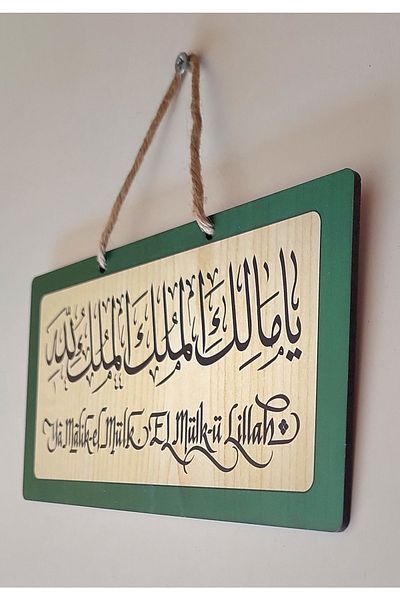 يا مَالِكَ المُلك المُلكُ لِلّٰهِ
Yâ Mâlik-el Mülk El Mülk-ü Lillah